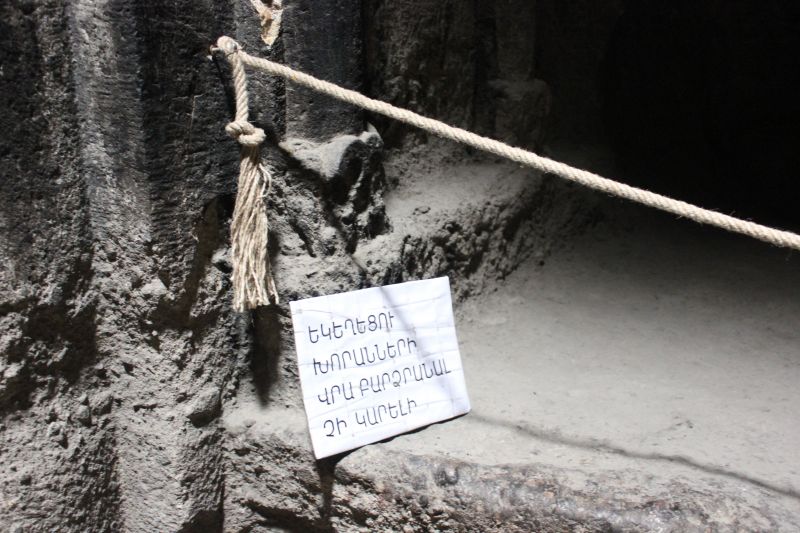 ԵԿԵՂԵՑՈՒ
ԽՈՐԱՆՆԵՐԻ
ՎՐԱ ԲԱՐՁՐԱՆԱԼ
ՉԻ ԿԱՐԵԼԻ